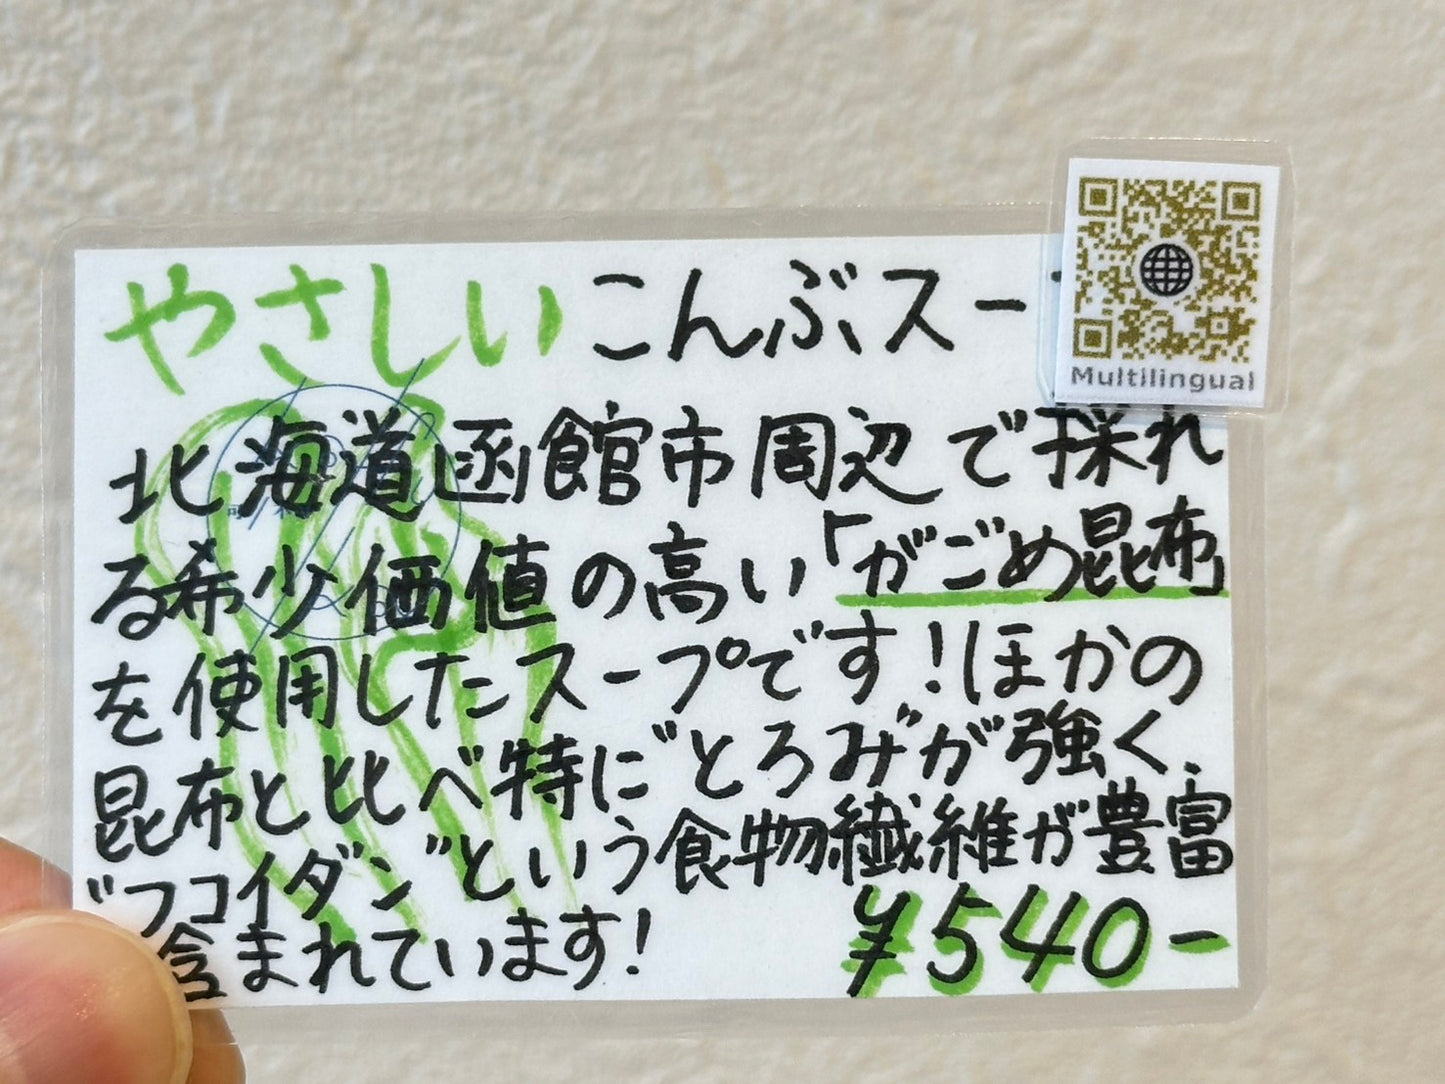 やさしいこんぶスー
Multilingual
北海道函館市周辺で採れ
る希少価値の高い「がごめ昆布」
を使用したスープです！ほかの
昆布と比べ特に"とろみ"が強く、
"フコイダン"という食物繊維が豊富
含まれています！
¥540-